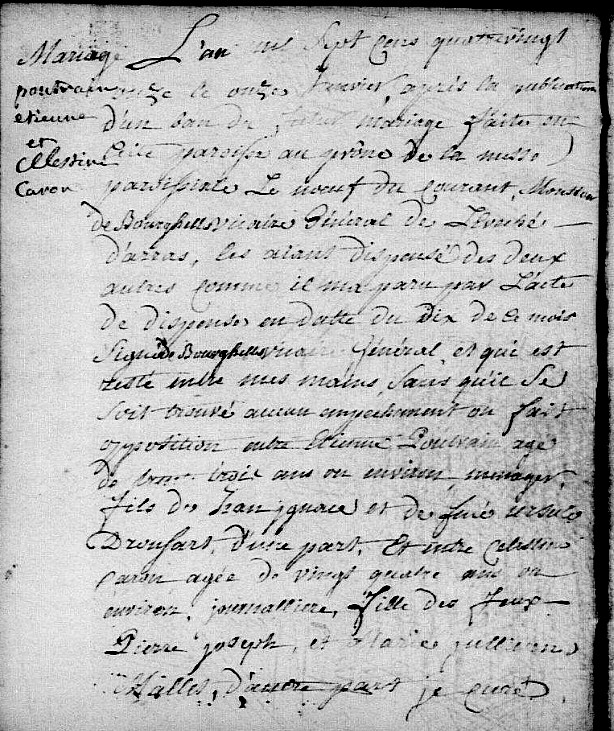 Mariage
poutrain
etienne
et
Celestine
Caron
L'an mil sept cens quattrevingt
onze le onze Janvier, après la publication
d'un ban de futur mariage faite en
cette paroisse au prône de la messe
paroissiale Le noeuf du courant, Monsieur
de Bourghelles vicaire Général de L'évêché
d'arras, les aiant dispensé des deux
autres comme il m'a paru par L'acte
de dispense en datte du Dix de ce mois
Signé de Bourghelles vicaire Général, et qui est
resté entre mes mains, sans qu'il se
soit trouvé aucun empechement ou fait
opposition entre Etienne Poutrain agé
de trois ans ou environ, menager,
fils de Jean ignace et de fuë ursule
Droufart, d'une part, Et entre Celestine
Caron agée de vingt quatre ans ou
environ, journalliere, Fille des feux
Pierre joseph, et Marie jullienne
Halles, d'autre part je curé